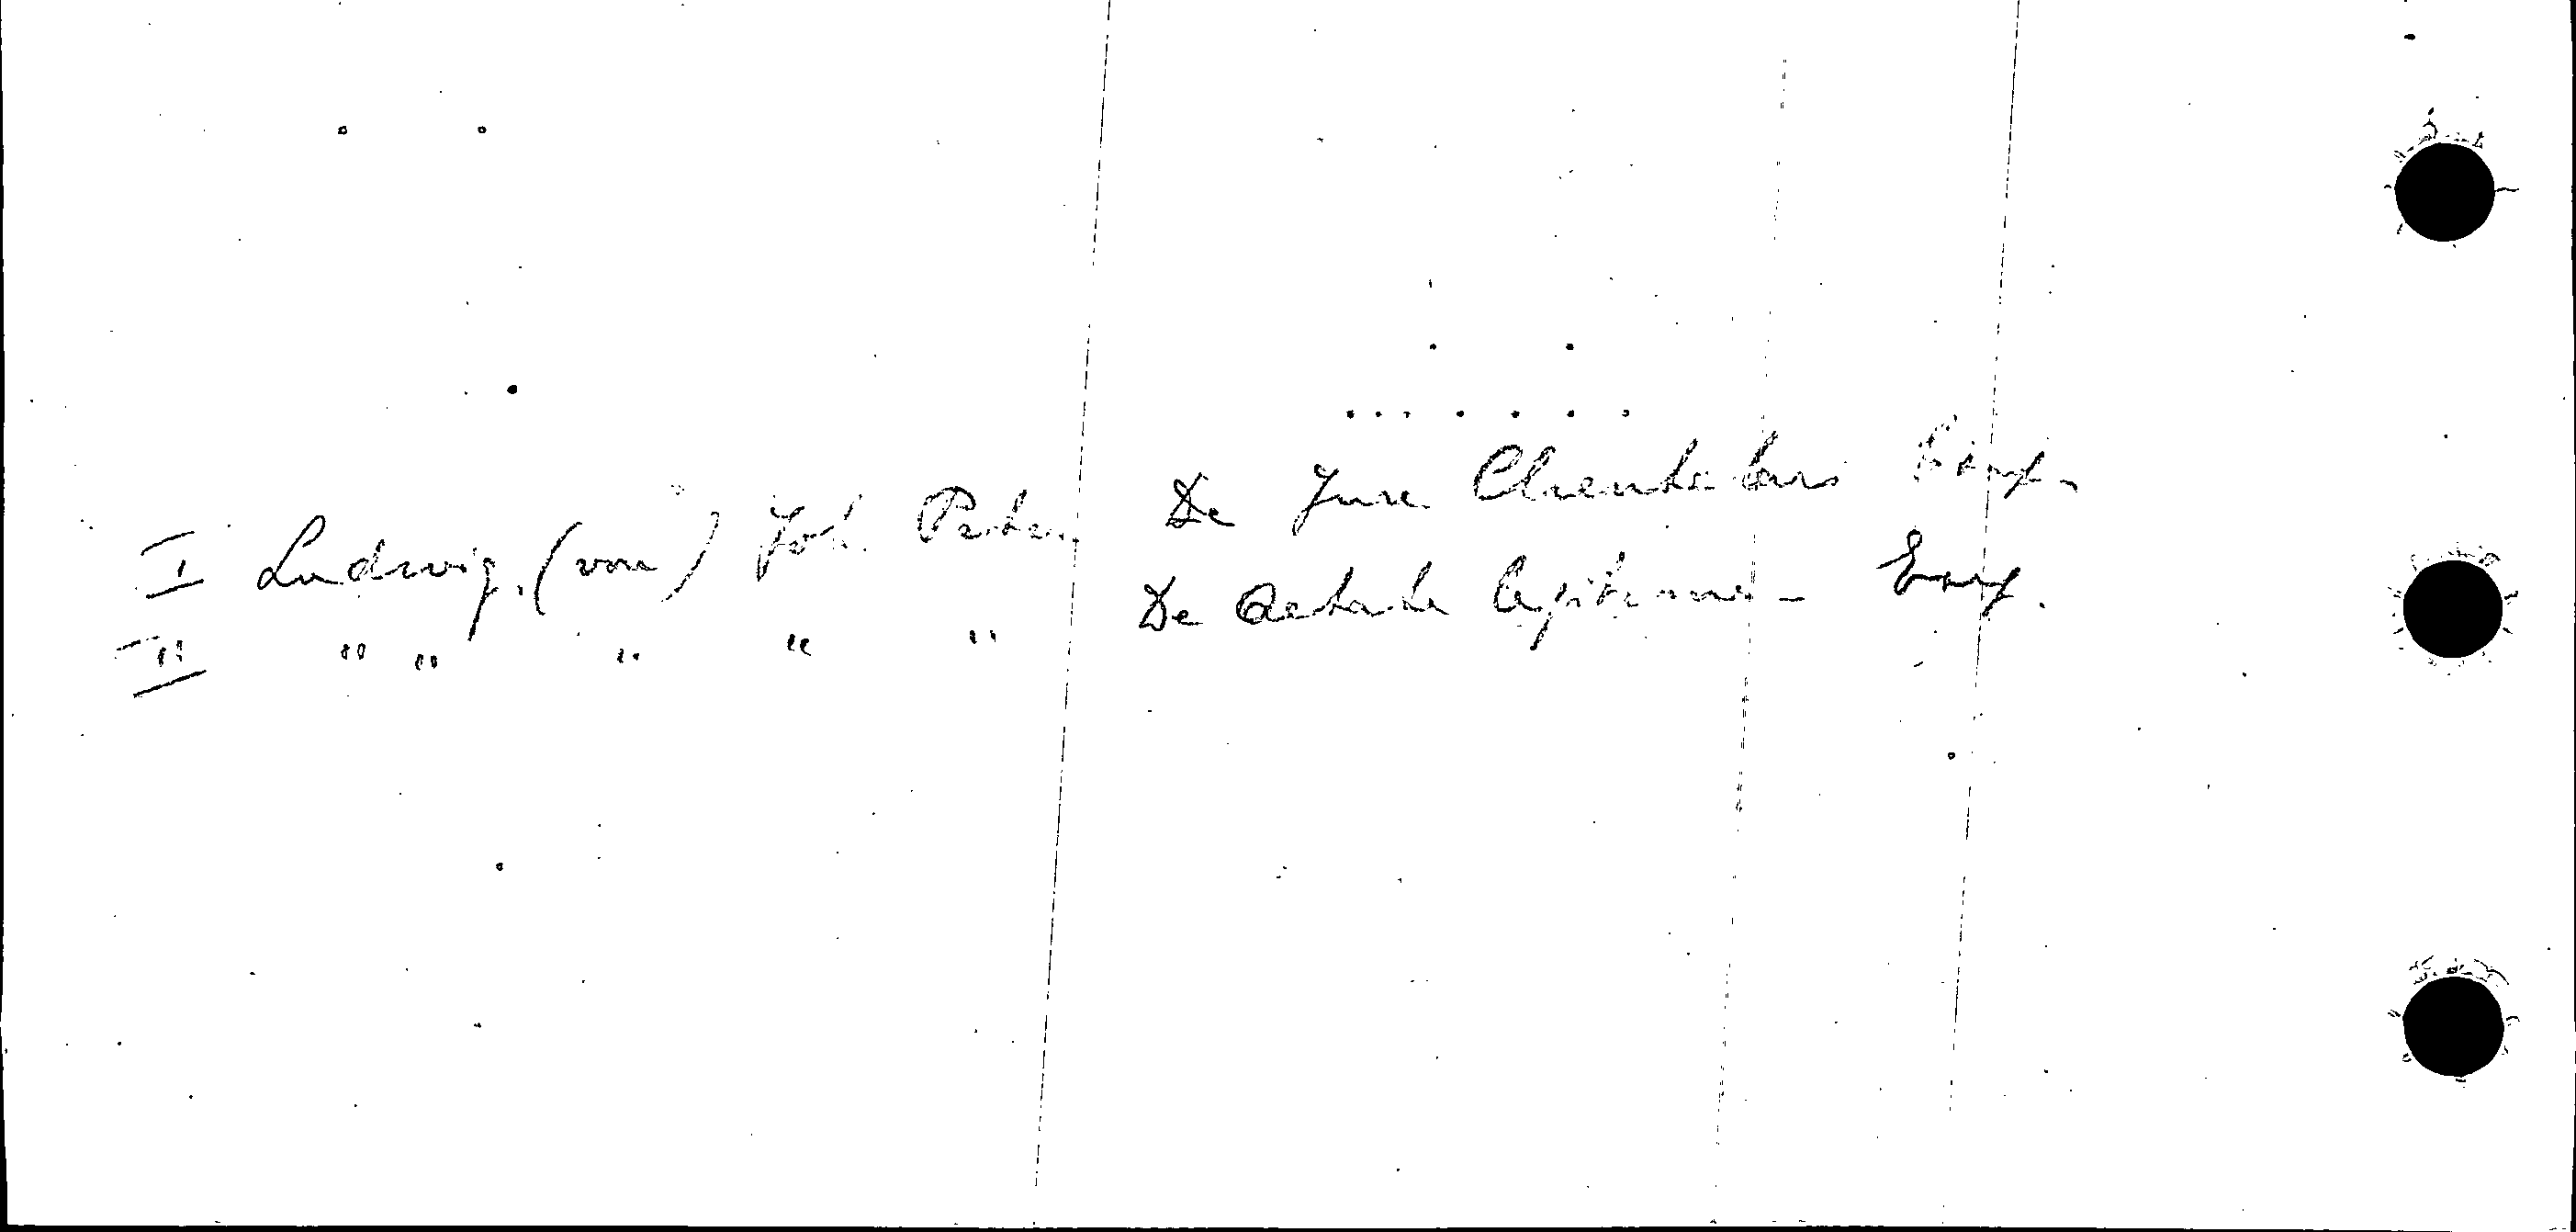 I Ludwig. (von) Joh. Peter. De Jure Clientelari
II " " " " " De Aetate Legitima -